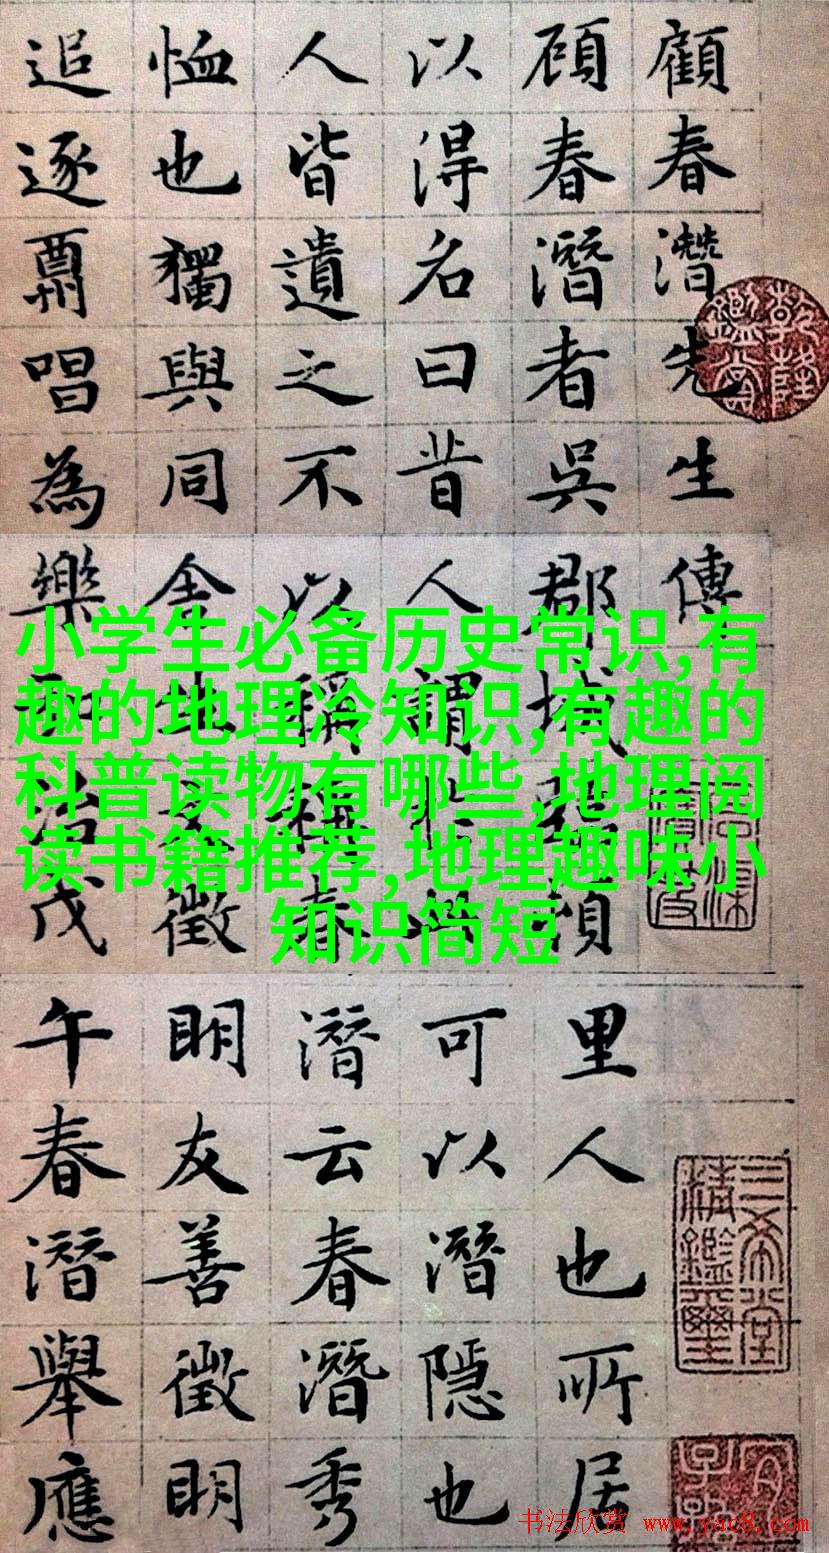 顧春潛先生傳
顧春潛者吳郡城頓里人也所居
以得名曰昔人謂可以潛隱也
人皆遺之不以稱春潛云春潛秀
恤也獨與同舍徵明友善徵明
追逐賡唱為樂治戊午春潛舉應
小学生必备历史常识,有
趣的地理冷知识,有趣的
科普读物有哪些,地理阅
读书籍推荐,地理趣味小
知识简短
乾隆鑑賞
三希堂精鑑璽
书法欣赏 www.yac8.com